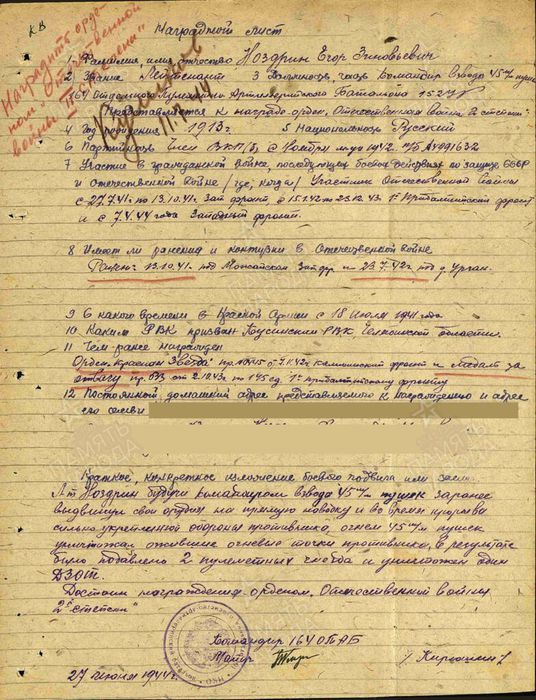 КВ
Наградить орденом "Отечественной войны II степени"
11.7.44
Наградной лист
1 Фамилия имя отчество Ноздрин Егор Зиновьевич
2 Звание Лейтенант 3 Должность, часть Командир взвода 45 м/м пушек
164 Отдельного Пулеметно Артиллерийского Батальона 152 УР
Представляется к награде орден „Отечественная война 2й степени"
4 Год рождения 1913 г. 5 Национальность Русский
6 Партийность Член ВКП(б) с Ноября м-ца 1942 п/б 4491632
7 Участие в гражданской войне, последующих боевых действиях по защите СССР
и отечественной войне /где, когда/ Участник Отечественной войны
с 27.7.41 по 13.10.41. Зап фронт, с 15.1.42 по 23.12.43 1й Прибалтийский фронт
и с 7.4.44 года Западный фронт.
8 Имеет ли ранения и контузии в Отечественной войне
Ранен: 13.10.41. под Зап фр и 23.7.42 г. под д.
9 С какого времени в Красной Армии с 18 Июля 1941 года
10 Каким РВК призван РВК области.
11 Чем ранее награжден
Орден „Красная Звезда" пр. от 7.11.42 Калининский фронт и Медаль за
отвагу пр. от 2.10.43 по 145 сд. 1й Прибалтийскому фронту
12 Постоянный домашний адрес представляемого к награждению и адрес
его семьи
Краткое, конкретное изложение боевого подвига или заслуг
Л-т Ноздрин будучи командиром взвода 45 м/м пушек заранее
выдвинул свои орудия на прямую наводку и во время прорыва
сильно укрепленной обороны противника огнем 45 м/м пушек
уничтожал ожившие огневые точки противника, в результате
было подавлено 2 пулеметных гнезда и уничтожен один
ДЗОТ.
Достоин награждения орденом „Отечественной войны
2й степени"
Командир 164 ОПАБ
Майор / Кирюшкин /
27 июня 1944 г.
ПАМЯТЬ НАРОДА